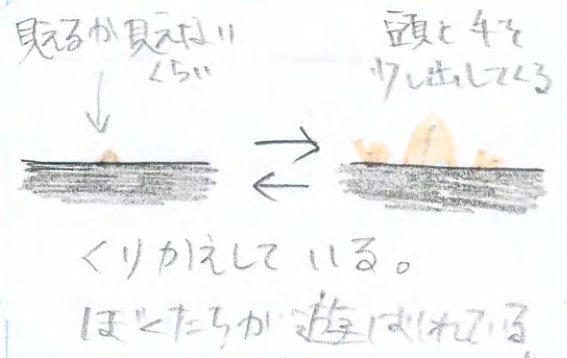 見えるか見えない
くらい
頭と手を
少し出してくる
くりかえしている。
ぼくたちが遊ばれている